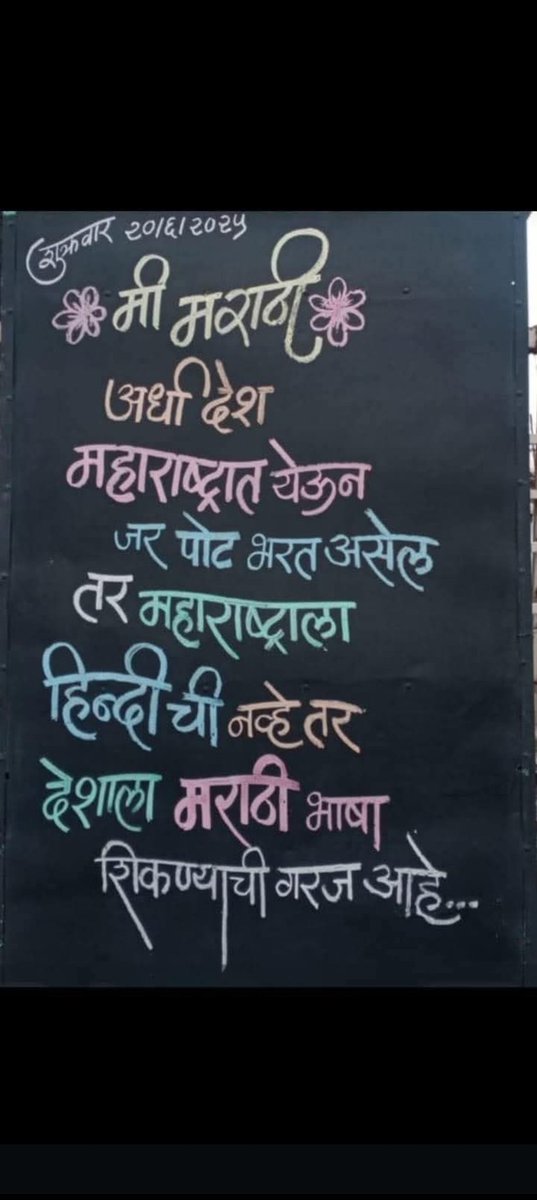 शुक्रवार २०/६/२०२५
मी मराठी
अर्धा देश
महाराष्ट्रात येऊन
जर पोट भरत असेल
तर महाराष्ट्राला
हिन्दी ची नव्हे तर
देशाला मराठी भाषा
शिकण्याची गरज आहे...